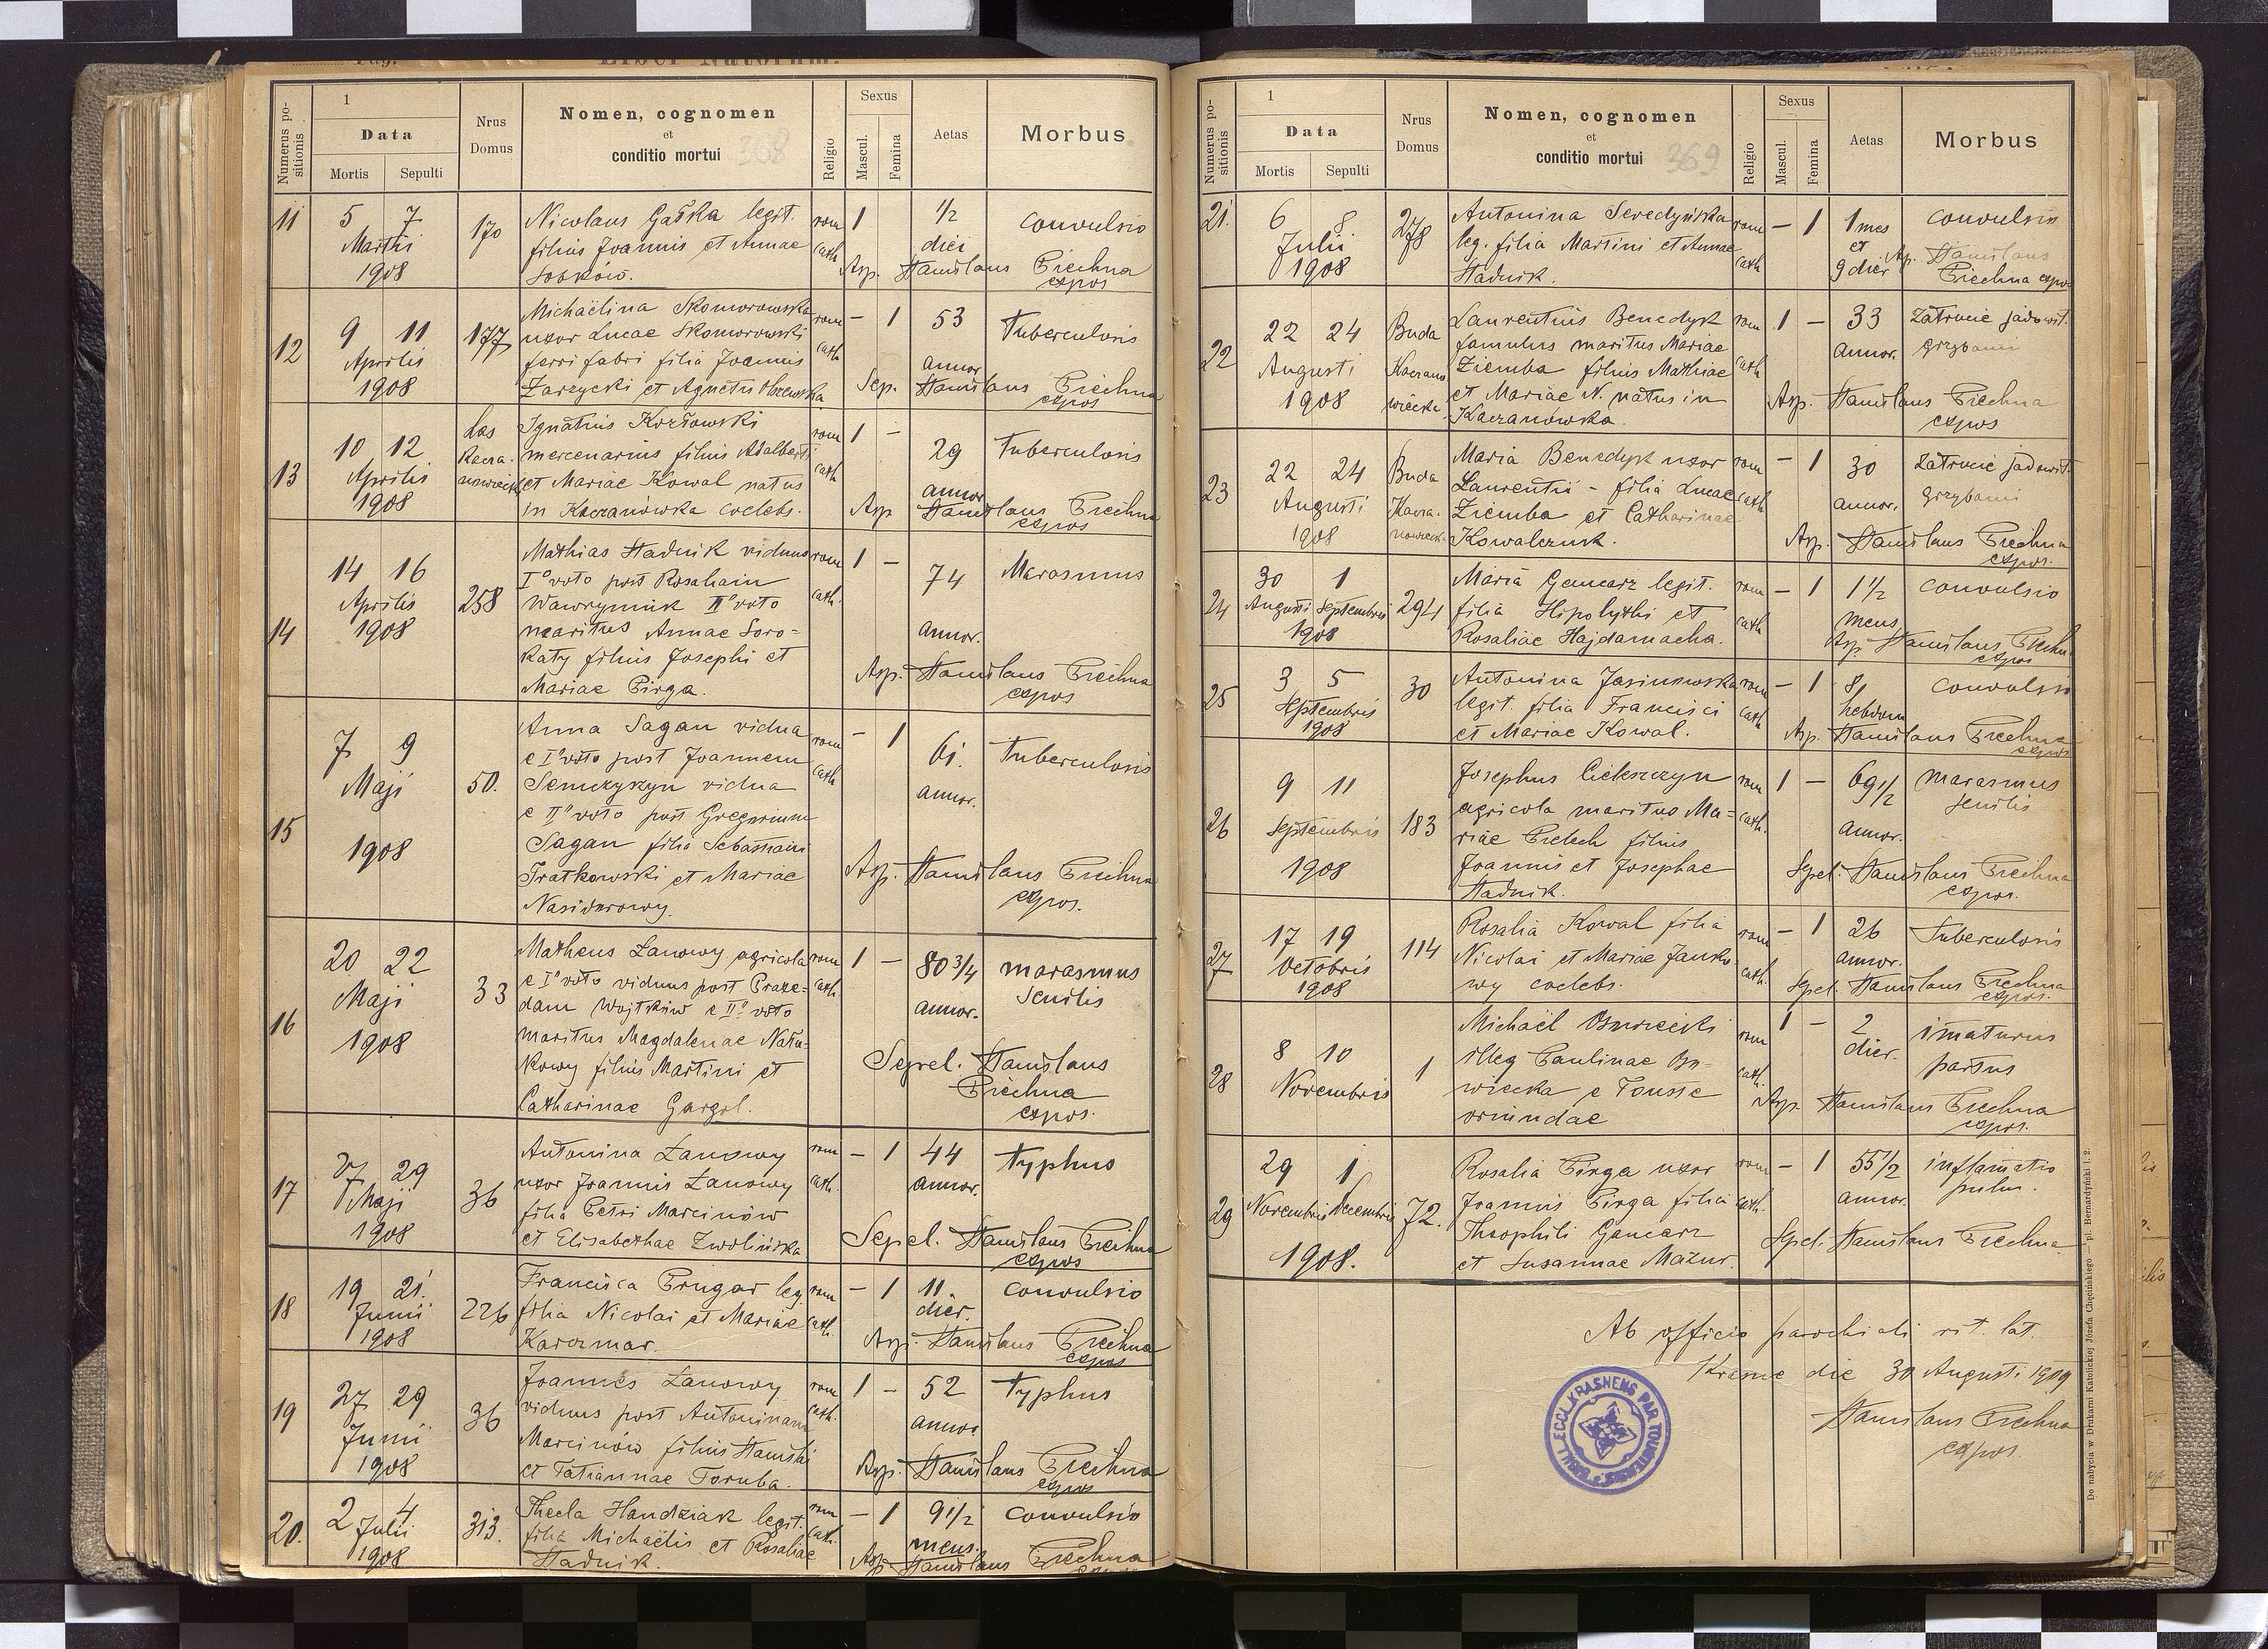 Pag.
Liber Natorum.
Numerus po-
sitionis
1
Data
Mortis Sepulti
Nrus
Domus
Nomen, cognomen
et
conditio mortui 368
Religio
Sexus
Mascul. Femina
Aetas
Morbus
11
5 7
Martii
1908
170
Nicolaus Gaśka legit.
filius Joannis et Annae
Sobków.
rom
cath
1
1/2
diei
convulsio
Asp. Stanislaus Piechna
expos
12
9 11
Aprilis
1908
177
Michaëlina Skomorowska
uxor Lucae Skomorowski
ferri fabri filia Joannis
Zarzycki et Agnetis
rom
cath
- 1
53
annor
Tuberculosis
Sep. Stanislaus Piechna
expos
13
10 12
Aprilis
1908
Las
Kacza-
nowiecki
Ignatius Kozłowski
mercenarius filius Adalberti
et Mariae Kowal natus
in Kaczanówka coelebs.
rom
cath
1 -
29
annor
Tuberculosis
Asp Stanislaus Piechna
expos
14
14 16
Aprilis
1908
258
Mathias Stadnik viduus
I° voto post Rosaliam
Wawryniuk II° voto
maritus Annae Soro=
katy filius Josephi et
Mariae Pirga.
rom
cath.
1 -
74
annor.
Marasmus
Asp. Stanislaus Piechna
expos
15
7 9
Maji
1908
50.
Anna Sagan vidua
e I° voto post Joannem
Semczyszyn vidua
e II° voto post Gregorium
Sagan filia Sebastiani
Tratkowski et Mariae
rom
cath
- 1
61.
annor.
Tuberculosis
Asp. Stanislaus Piechna
expos.
16
20 22
Maji
1908
33
Matheus Łanowy agricola
e I° voto viduus post Praxe=
dam Wojtków e II° voto
maritus Magdalenae Natu-
kowy filius Martini et
Catharinae Gargol.
rom
cath.
1 -
80 3/4
annor.
marasmus
senilis
Sepel. Stanislaus
Piechna
expos.
17
27 29
Maji
1908
36
Antonina Łanowy
uxor Joannis Łanowy
filia Petri Marcinów
et Elisabethae Zwolińska
rom
cath.
- 1
44
annor.
typhus
Sepel. Stanislaus Piechna
expos
18
19 21.
Junii
1908
226
Francisca Prugar leg.
filia Nicolai et Mariae
Karczmar.
rom
cath.
- 1
11.
dier.
convulsio
Asp. Stanislaus Piechna
expos
19
27 29
Junii
1908
36
Joannes Łanowy
viduus post Antoninam
Marcinów filius Stanislai
et Tatiannae Toruba.
rom
cath.
1 -
52
annor.
typhus
Asp. Stanislaus Piechna
expos
20.
2 4
Julii
1908
313.
Thecla Handziak legit.
filia Michaëlis et Rosaliae
Stadnik.
rom
cath.
- 1
9 1/2
mens.
convulsio
Asp. Stanislaus Piechna
Numerus po-
sitionis
1
Data
Mortis Sepulti
Nrus
Domus
Nomen, cognomen
et
conditio mortui 369
Religio
Sexus
Mascul. Femina
Aetas
Morbus
21.
6 8
Julii
1908
278
Antonina Seredyńska
leg. filia Martini et Annae
Stadnik.
rom
cath
- 1
1 mes
et
9 dier
convulsio
Asp. Stanislaus
Piechna expos
22
22 24
Augusti
1908
Buda
Kaczano
wiecka.
Laurentius Benedyk
famulus maritus Mariae
Ziemba filius Mathiae
et Mariae N. natus in
Kaczanówka.
rom
cath
1 -
33
annor.
zatrucie jadowit.
grzybami
Asp. Stanislaus Piechna
expos
23
22 24
Augusti
1908
Buda
Kacza-
nowieck.
Maria Benedyk uxor
Laurentii - filia Lucae
Ziemba et Catharinae
Kowalczuk.
rom
cath
- 1
30
annor.
zatrucie jadowit.
grzybami
Asp. Stanislaus Piechna
expos.
24
30 1
Augusti Septembris
1908
294
Maria Gancarz legit.
filia Hipolythi et
Rosaliae Hajdamacha.
rom
cath
- 1
1 1/2
mens.
convulsio
Asp. Stanislaus Piechna
expos
25
3 5
Septembris
1908
30
Antonina Jasinowska
legit. filia Francisci
et Mariae Kowal.
rom
cath
- 1
8
hebdom
convulsio
Asp. Stanislaus Piechna
expos
26
9 11
Septembris
1908
183
Josephus Cickszczyn
agricola maritus Ma=
riae Pielech filius
Joannis et Josephae
Stadnik.
rom
cath.
1 -
69 1/2
annor.
marasmus
senilis
Sepel. Stanislaus Piechna
expos.
27
17 19
Octobris
1908
114
Rosalia Kowal filia
Nicolai et Mariae Janko-
wy coelebs.
rom
cath.
- 1
26
annor.
Tuberculosis
Sepel. Stanislaus Piechna
expos.
28
8 10
Novembris
1
Michaël
illeg Paulinae
wiecka e Touste
oriundae
rom
cath.
1 -
2
dier.
imaturus
partus
Asp. Stanislaus Piechna
expos.
29
29 1
Novembris Decembris
1908.
72.
Rosalia Pirga uxor
Joannis Pirga filia
Theophili Gancarz
et Susannae Mazur.
rom
cath.
- 1
55 1/2
annor.
inflamatio
pulm.
Sepel. Stanislaus Piechna
Ab officio parochiali rit. lat.
Krasne die 30 Augusti 1909
Stanislaus Piechna
expos
ECCL. KRASNENS PAR TOUSTENSIS
Do nabycia w Drukarni Katolickiej Józefa Chęcińskiego — pl. Bernardyński l. 2.